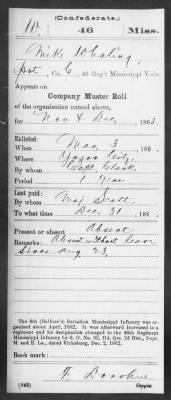 (Confederate.)
W 46 Miss.
Mike Whaling
Pvt., Co. C, 46 Reg't Mississippi Vols.
Appears on
Company Muster Roll
of the organization named above,
for Nov & Dec, 1863.
Enlisted:
When Mar 3, 186 .
Where Yazoo City
By whom Capt. Clark
Period 1 Year
Last paid:
By whom Maj Scott
To what time Dec 31, 186 .
Present or absent Absent
Remarks: Absent without leave
Since Aug 23
The 6th (Balfour's) Battalion Mississippi Infantry was
organized about April, 1862. It was afterward increased to a
regiment and its designation changed to the 46th Regiment
Mississippi Infantry by S. O. No. 82, Hd. Qrs. 2d Dist., Dept.
M. and E. La., dated Vicksburg, Dec. 2, 1862.
Book mark:
F. Donohue
(642) Copyist.